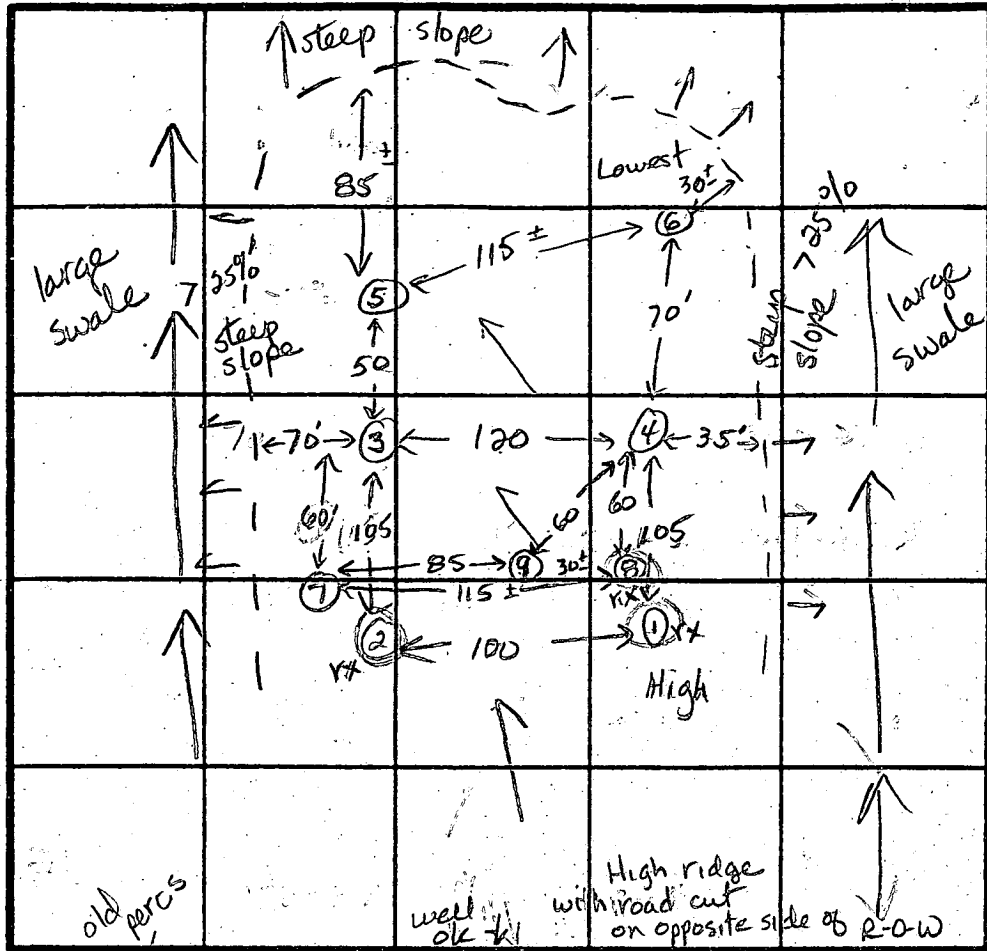 steep slope
Lowest
85 ±
30 ±
large
swale
> 25%
steep
slope
5
115 ±
6
70'
steep
slope > 25%
large
swale
50
70'
3
120
4
35'
60'
105
60
60
105
85
9
30±
8
rx
7
115 ±
2
rx
100
1
rx
High
old percs
well
ok
High ridge
with road cut
on opposite side of R-O-W